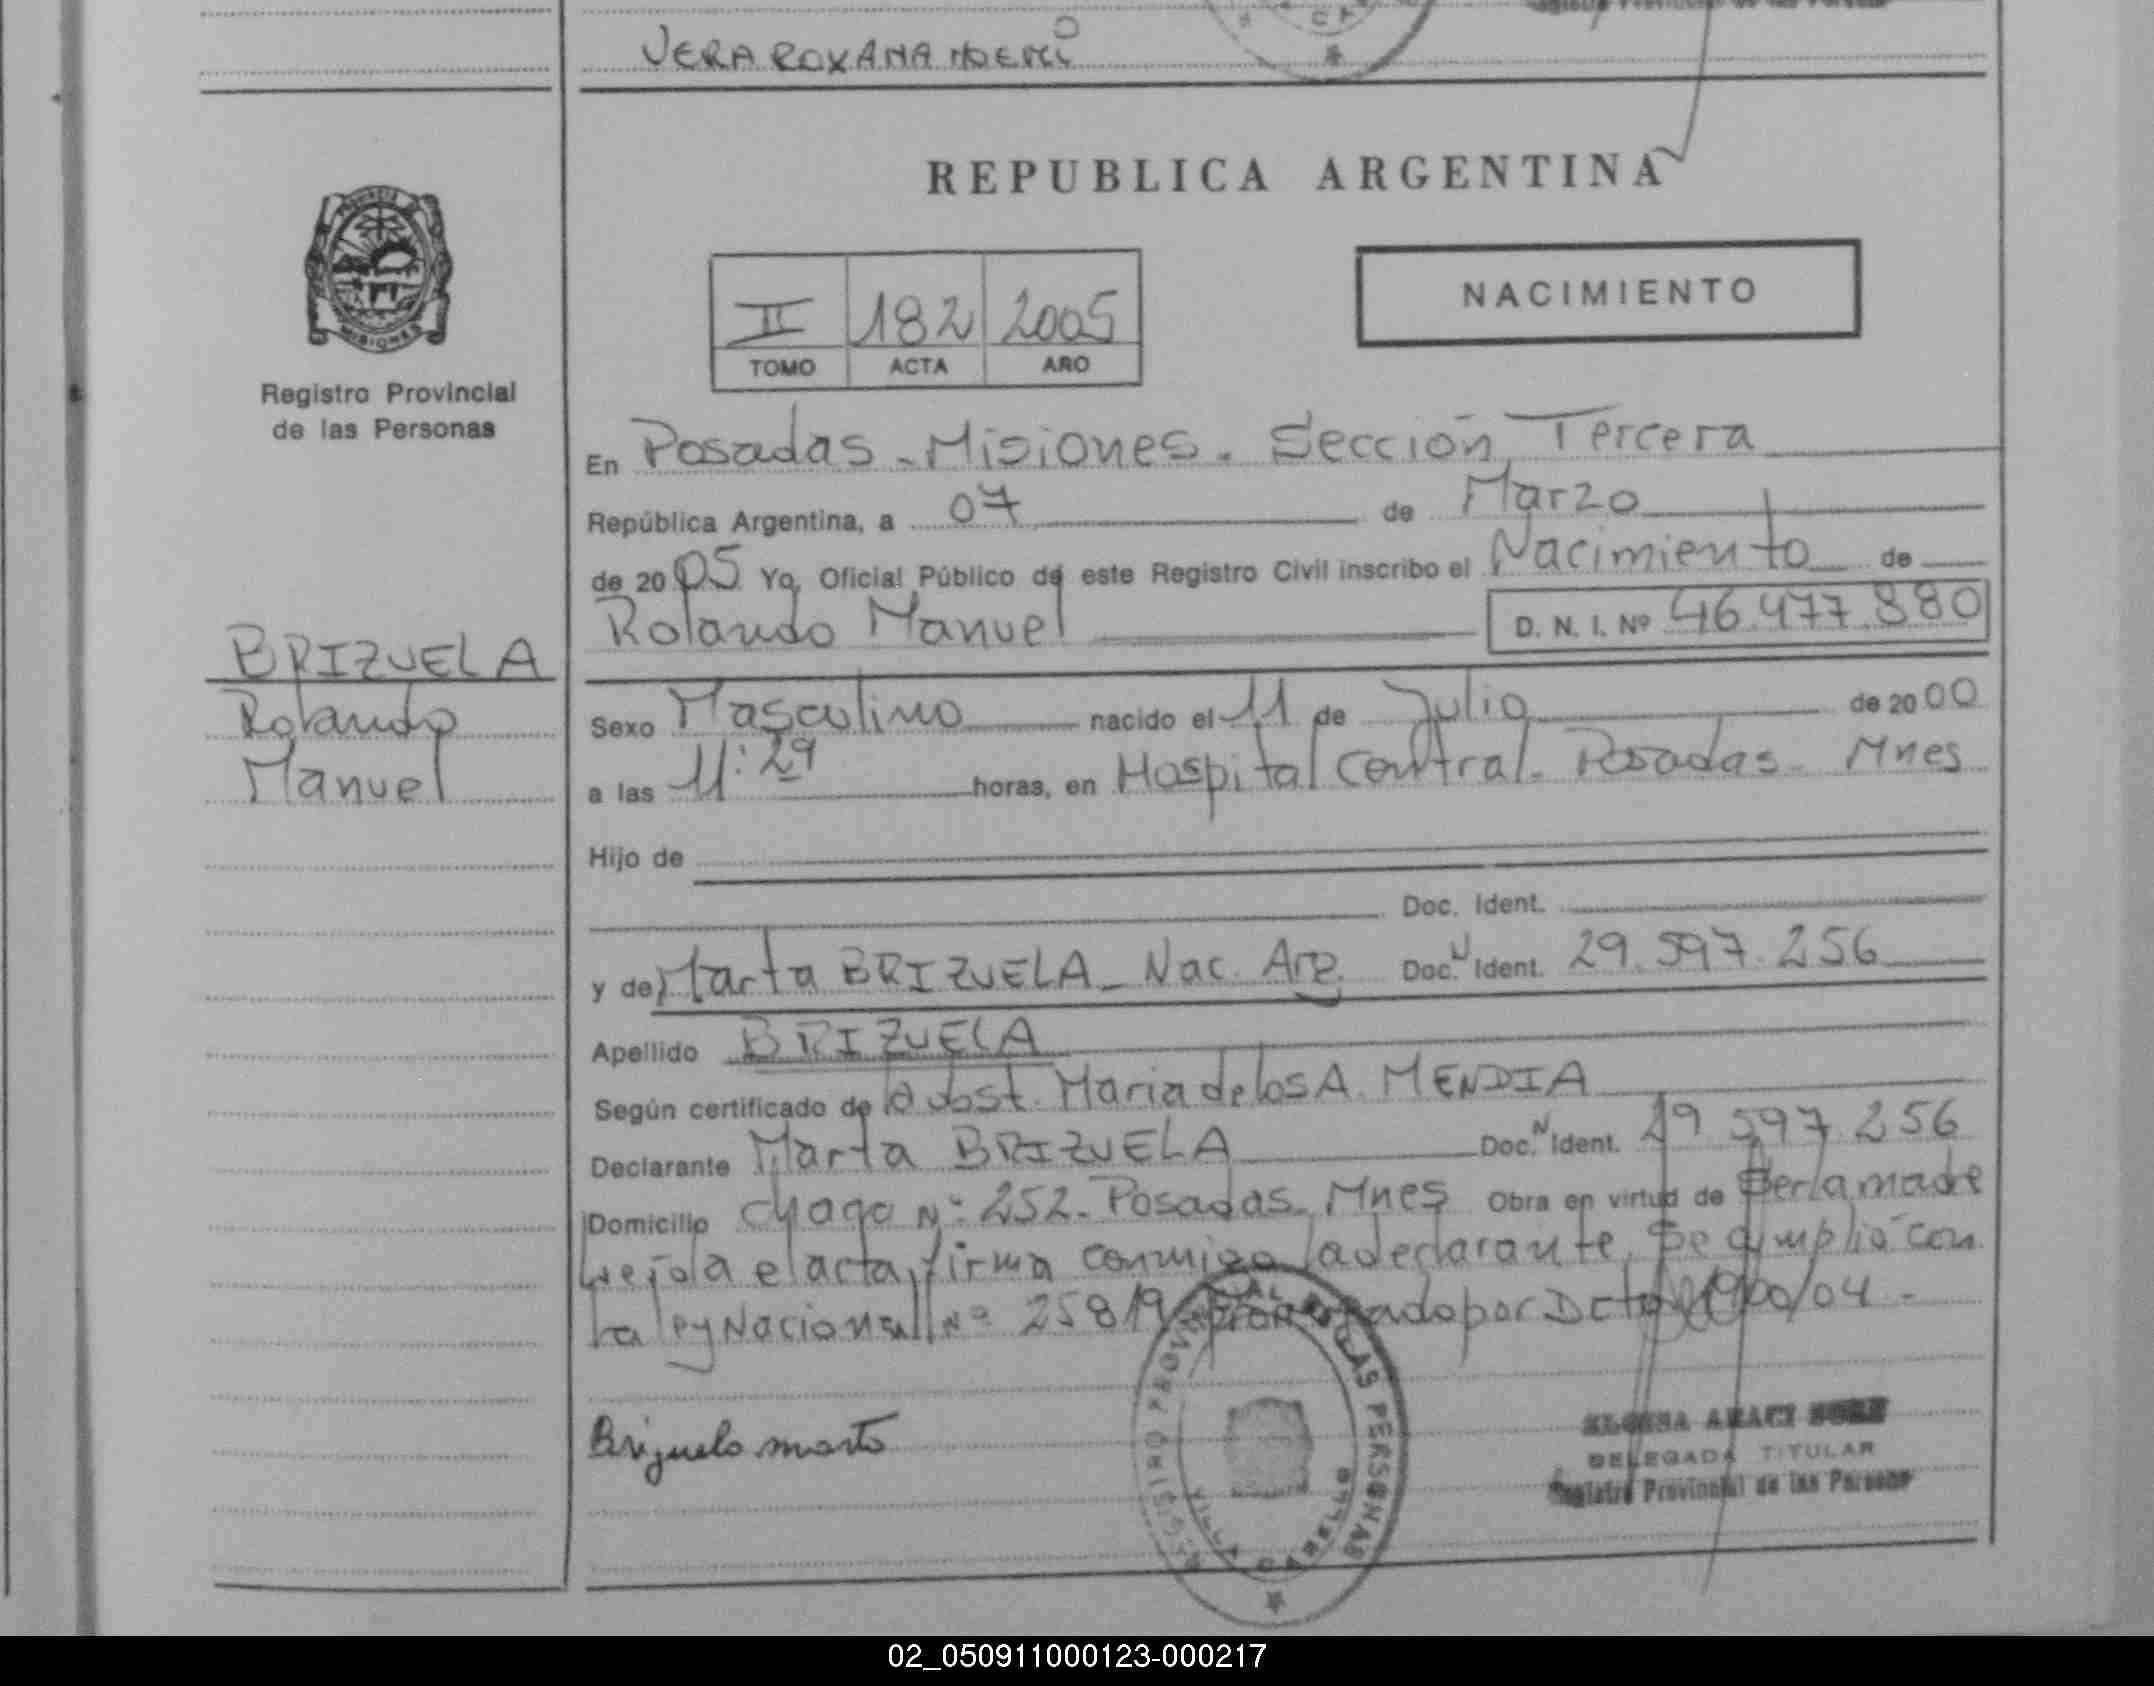 VERA ROXANA NOEMÍ
REPUBLICA ARGENTINA
MISIONES
Registro Provincial
de las Personas
II 182 2005
TOMO ACTA AÑO
NACIMIENTO
En Posadas - Misiones. Sección Tercera
República Argentina, a 07 de Marzo
de 2005 Yo, Oficial Público de este Registro Civil inscribo el Nacimiento de
Rolando Manuel D. N. I. Nº 46.477.880
BRIZUELA
Rolando
Manuel
Sexo Masculino nacido el 11 de Julio de 2000
a las 11:29 horas, en Hospital Central. Posadas - Mnes
Hijo de
Doc. Ident.
y de Marta BRIZUELA - Nac. Arg. Doc. N Ident. 29.597.256
Apellido BRIZUELA
Según certificado de la obst. Maria de los A. MENDIA
Declarante Marta BRIZUELA Doc. N Ident. 29 597 256
Domicilio Nº 252 - Posadas. Mnes Obra en virtud de Ser la madre
leída el acta, firma conmigo la declarante, Se cumplió con
la ley Nacional Nº 25819 por Dcto 1900/04 -
Brizuela marta
DE LAS PERSONAS
VILLA CABELLO
DELEGADA TITULAR
Registro Provincial de las Personas
02_050911000123-000217